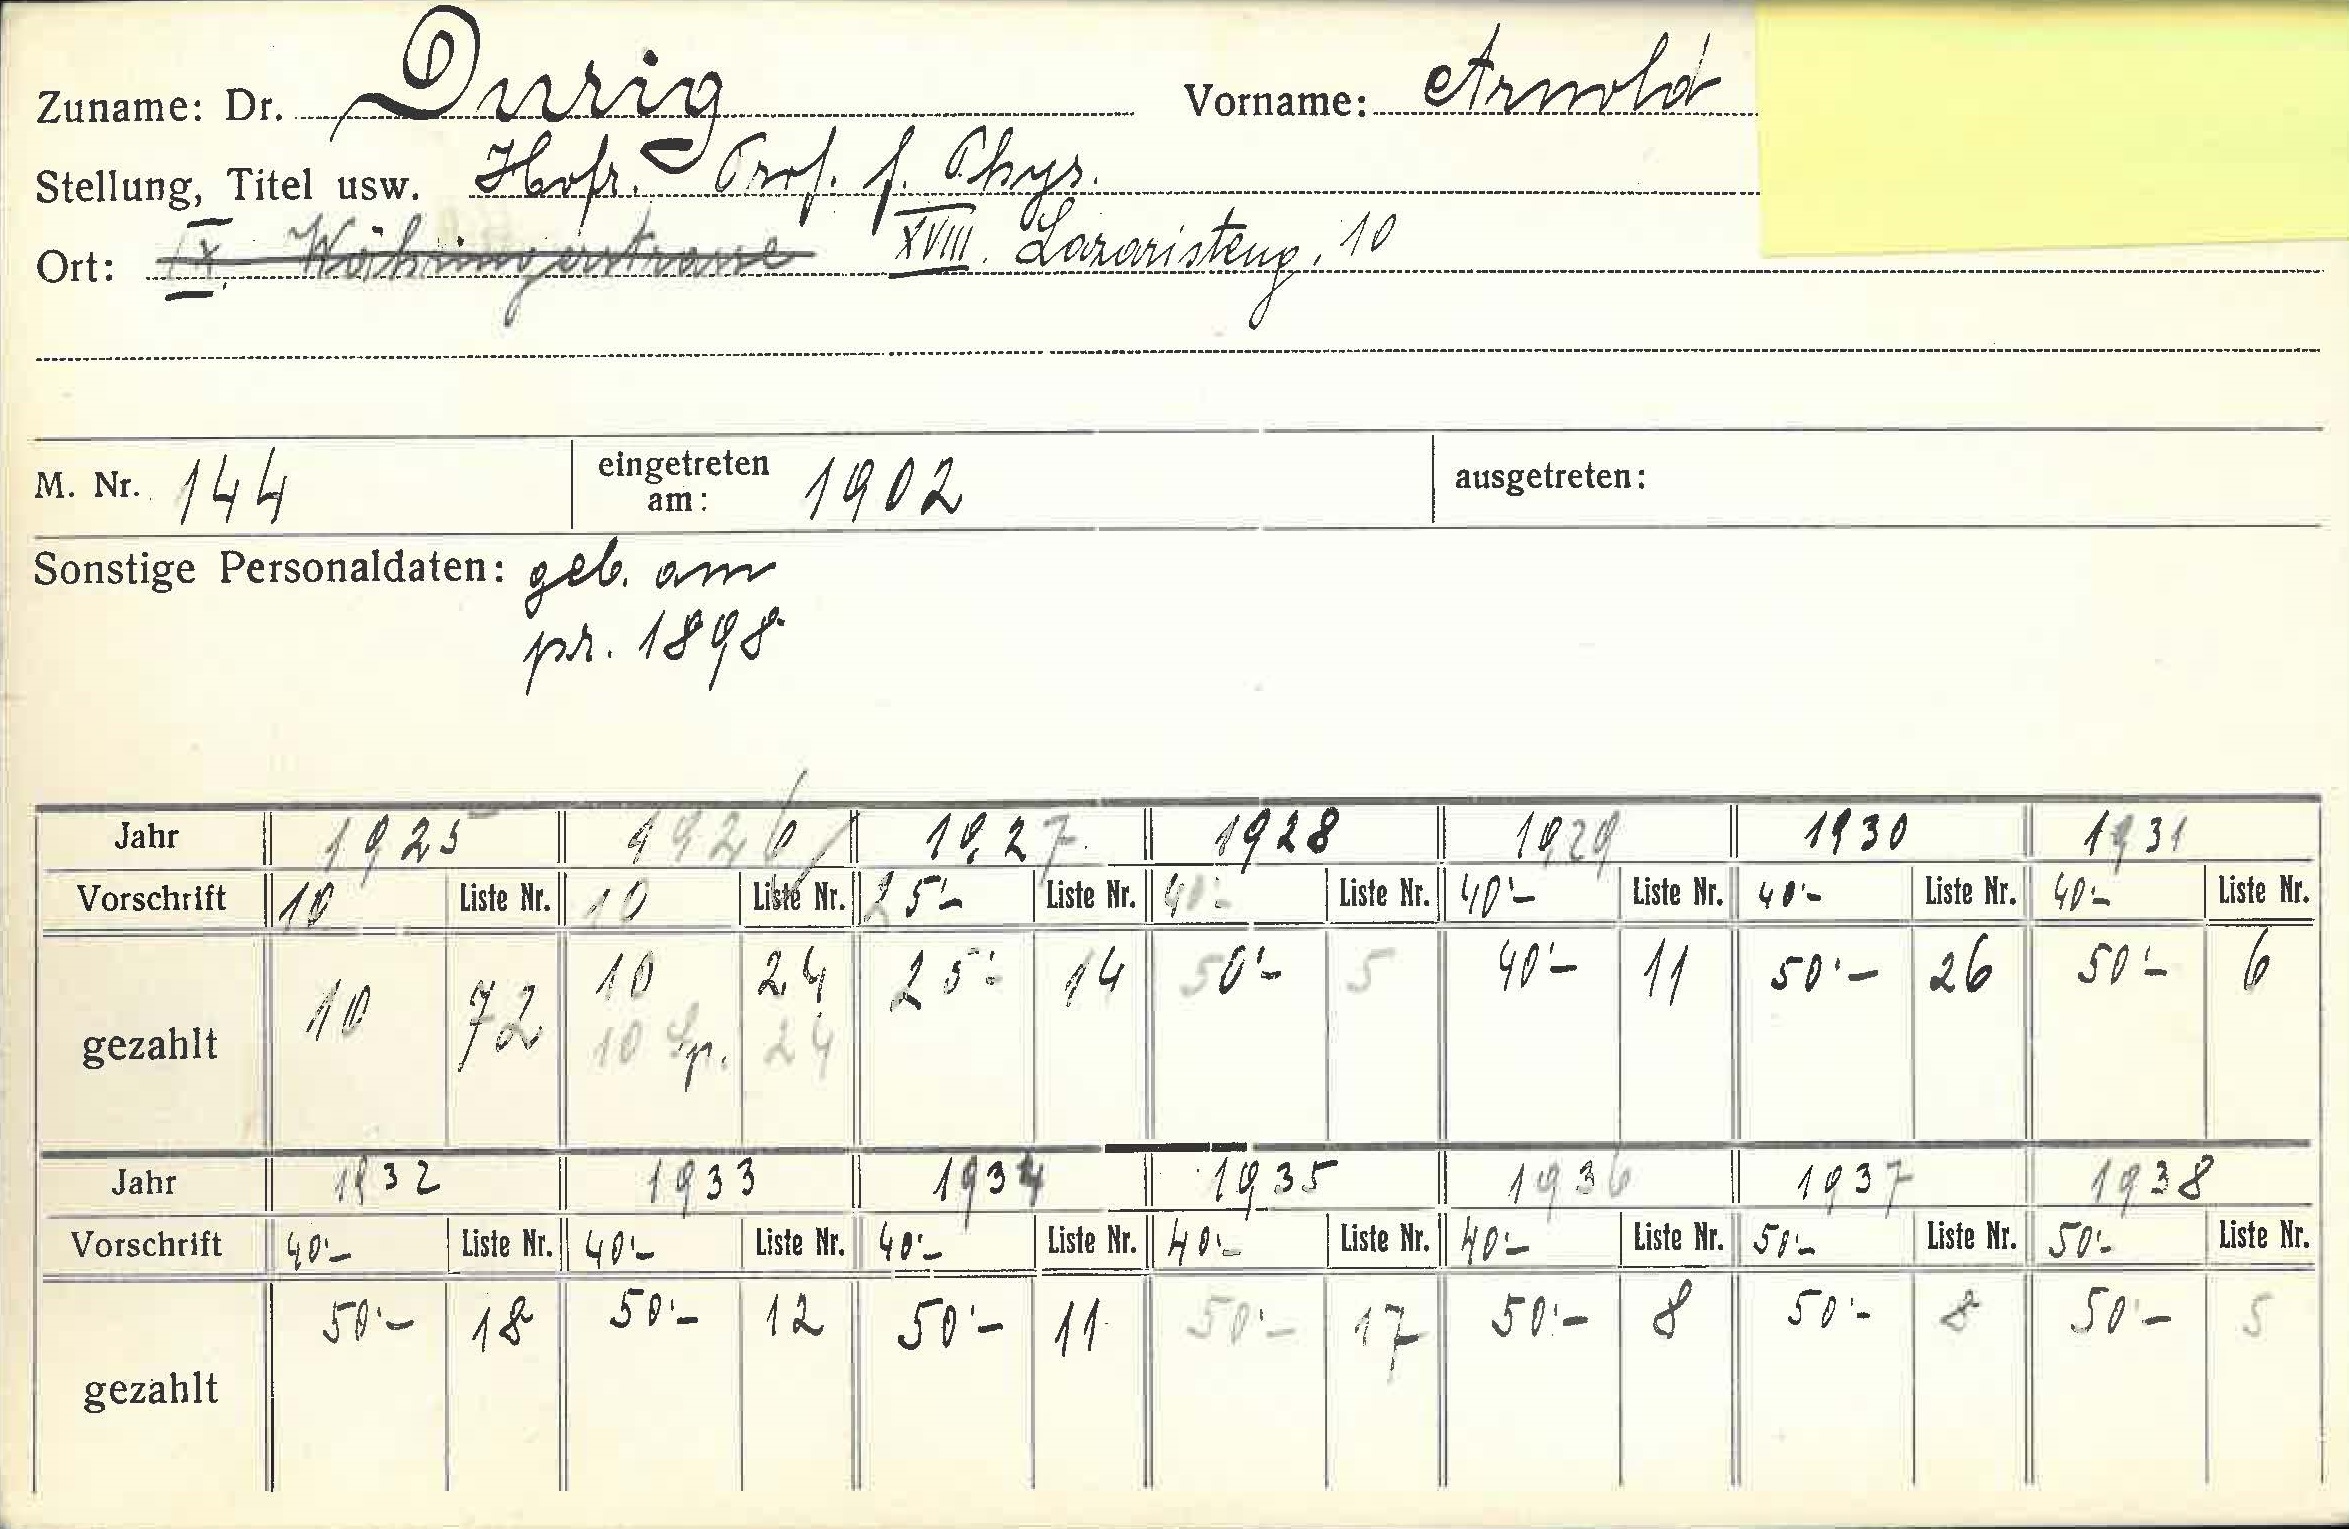 Zuname: Dr. Durig Vorname: Arnold
Stellung, Titel usw. Hofr. Prof. f. Phys.
Ort: IX. Währingerstrasse XVIII. Lazaristeng. 10
M. Nr. 144 eingetreten am: 1902 ausgetreten:
Sonstige Personaldaten: geb. am
pr. 1898
Jahr 1925 1926 1927 1928 1929 1930 1931
Vorschrift 10 Liste Nr. 10 Liste Nr. 25'- Liste Nr. 40'- Liste Nr. 40'- Liste Nr. 40'- Liste Nr. 40'- Liste Nr.
gezahlt 10 72 10 24 25'- 14 50'- 5 40'- 11 50'- 26 50'- 6
10 Sp. 24
Jahr 1932 1933 1934 1935 1936 1937 1938
Vorschrift 40'- Liste Nr. 40'- Liste Nr. 40'- Liste Nr. 40'- Liste Nr. 40'- Liste Nr. 50'- Liste Nr. 50'- Liste Nr.
gezahlt 50'- 18 50'- 12 50'- 11 50'- 17 50'- 8 50'- 8 50'- 5